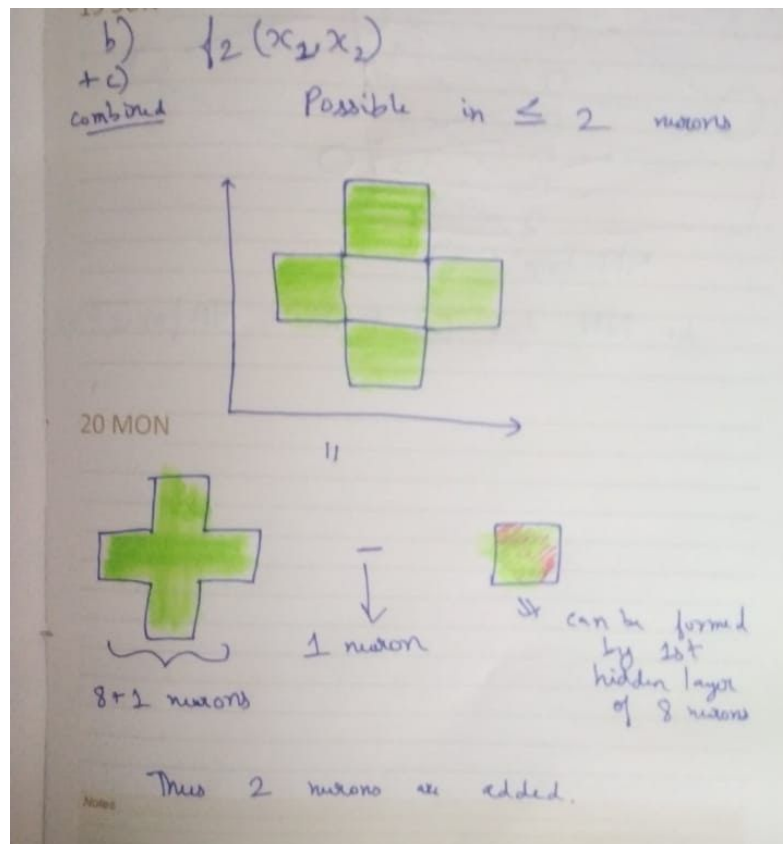 b) f₂ (x₁, x₂)
+ c)
combined
Possible in ≤ 2 nurons
20 MON
=
−
1 nuron
8 + 1 nurons
It can be formed
by 1st
hidden layer
of 8 nurons
Thus 2 nurons are added.
Notes